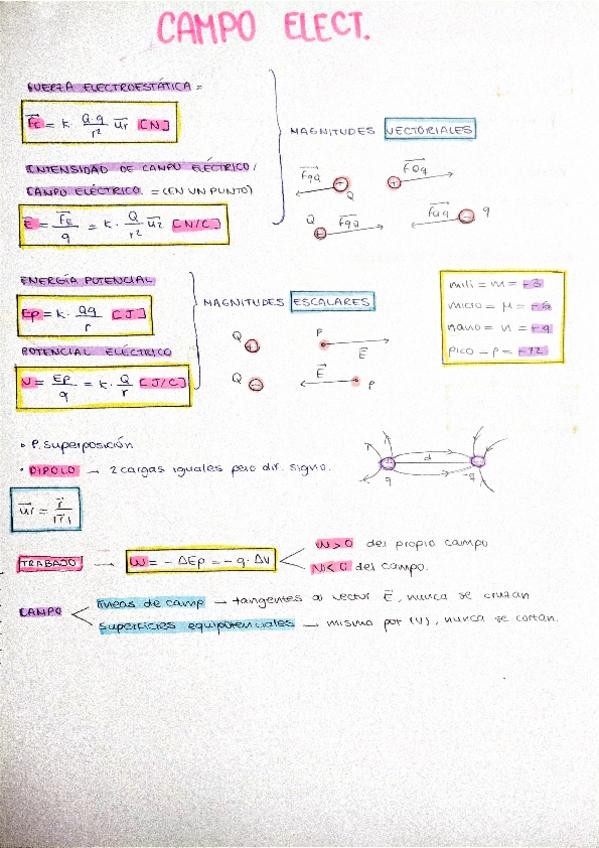 CAMPO ELECT.
FUERZA ELECTROESTÁTICA =
Fe = K · Q·q / r² ur [N]
MAGNITUDES VECTORIALES
INTENSIDAD DE CAMPO ELÉCTRICO /
CAMPO ELÉCTRICO. = (EN UN PUNTO)
E = Fe / q = K · Q / r² ur [N/C]
FqQ + Q + FQq
Q + FqQ FQq - q
ENERGÍA POTENCIAL
Ep = K · Qq / r [J]
MAGNITUDES ESCALARES
POTENCIAL ELÉCTRICO
V = Ep / q = K · Q / r [J/C]
Q + P E
Q - E P
mili = m = -3
micro = μ = -6
nano = n = -9
pico - p = -12
• P. Superposición
• DIPOLO → 2 cargas iguales pero dif. signo.
d
q -q
ur = r / |r|
TRABAJO → W = - ΔEp = - q · ΔV
W>0 del propio campo
W<0 del campo.
CAMPO
líneas de camp → tangentes al vector E, nunca se cruzan
superficies equipotenciales → mismo pot (V), nunca se cortan.